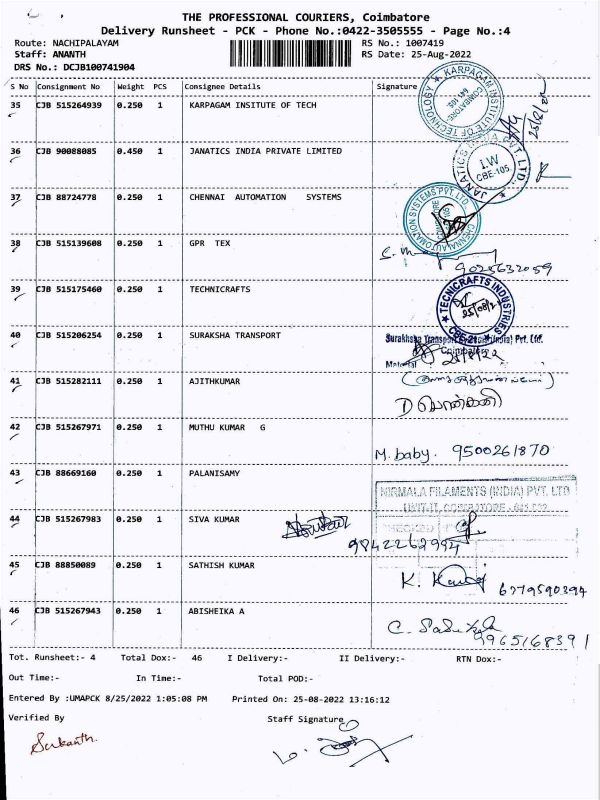 THE PROFESSIONAL COURIERS, Coimbatore
Delivery Runsheet - PCK - Phone No.:0422-3505555 - Page No.:4
Route: NACHIPALAYAM RS No.: 1007419
Staff: ANANTH RS Date: 25-Aug-2022
DRS No.: DCJB100741904
S No Consignment No Weight PCS Consignee Details Signature
35 CJB 515264939 0.250 1 KARPAGAM INSITUTE OF TECH
KARPAGAM INSTITUTE OF TECHNOLOGY COIMBATORE 641 105
36 CJB 90088085 0.450 1 JANATICS INDIA PRIVATE LIMITED
JANATICS INDIA PVT LTD. I.W CBE-105.
37 CJB 88724778 0.250 1 CHENNAI AUTOMATION SYSTEMS
CHENNAI AUTOMATION SYSTEMS PVT LTD.
38 CJB 515139608 0.250 1 GPR TEX
9025632059
39 CJB 515175460 0.250 1 TECHNICRAFTS
TECNICRAFTS INDUSTRIES CBE-21 25/08/22
40 CJB 515206254 0.250 1 SURAKSHA TRANSPORT
Suraksha Transport (India) Pvt. Ltd.
Coimbatore
Material
41 CJB 515282111 0.250 1 AJITHKUMAR
42 CJB 515267971 0.250 1 MUTHU KUMAR G
M. baby. 9500261870
43 CJB 88669160 0.250 1 PALANISAMY
NIRMALA FILAMENTS (INDIA) PVT. LTD
UNIT-II, COIMBATORE
CHECKED
44 CJB 515267983 0.250 1 SIVA KUMAR
9842262994
45 CJB 88850089 0.250 1 SATHISH KUMAR
6779590394
46 CJB 515267943 0.250 1 ABISHEIKA A
9965168391
Tot. Runsheet:- 4 Total Dox:- 46 I Delivery:- II Delivery:- RTN Dox:-
Out Time:- In Time:- Total POD:-
Entered By :UMAPCK 8/25/2022 1:05:08 PM Printed On: 25-08-2022 13:16:12
Verified By Staff Signature